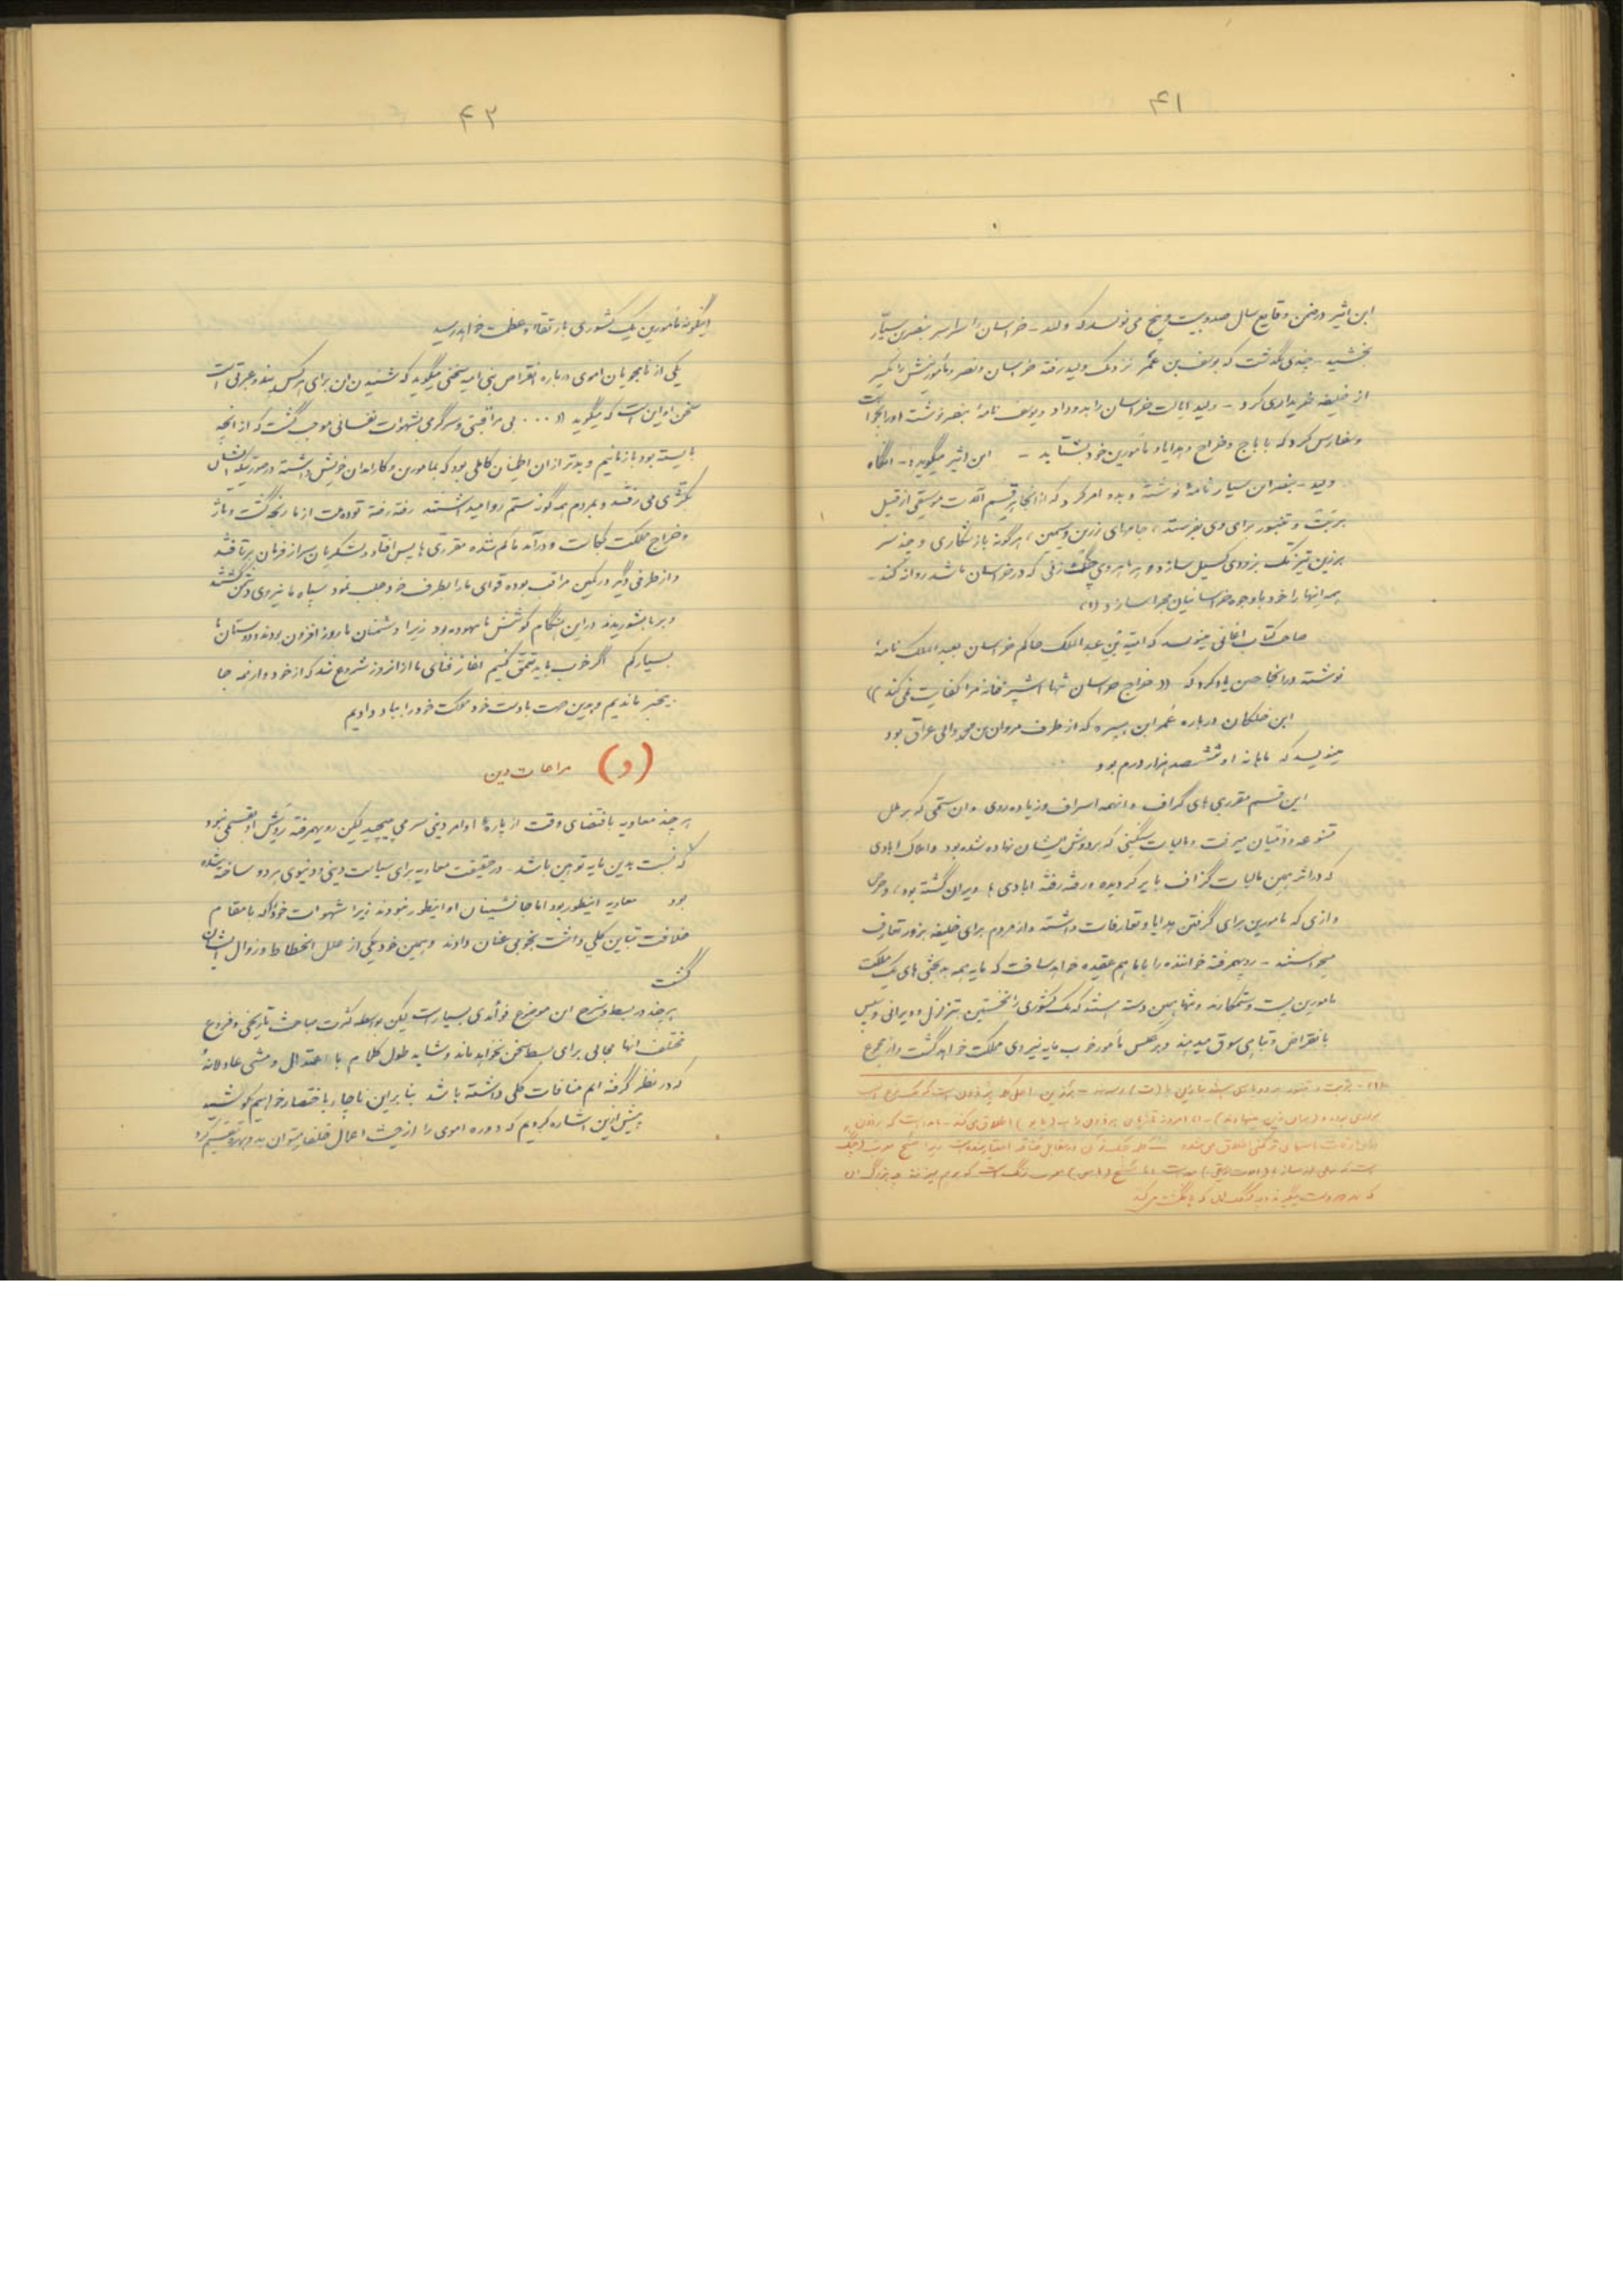 ۴۱
ابن اثیر در ضمن وقایع سال صد و بیست و پنج می نویسد که ولید - خراسان را سراسر بنصر بن سیار
بخشید - چندی نگذشت که یوسف بن عمر نزد ولید رفته خراسان و نصر و مأمورینش را یکسر
از خلیفه خریداری کرد - ولید ایالت خراسان را بدو داد و یوسف نامهٔ بنصر نوشت و او را بخواست
و سفارش کرد که با باج و خراج و هدایا و مأمورین خود بشتابد - ابن اثیر میگوید - آنگاه
ولید - بنصر بن سیار نامهٔ نوشته و بدو امر کرد که از آنجا هر قسم آلات موسیقی از قبیل
بربت و تنبور برای وی بفرستد، جامهای زرین و سیمین، هرگونه باز شکاری و چند سر
برذین تیزتک بزودی گسیل سازد و هر ماهروی چنگ زنی که در خراسان باشد روانه کند -
همه اینها را خود با وجوه خراسانیان مجرا سازد (۱)
صاحب کتاب اغانی مینویسد که امیة بن عبد الملک حاکم خراسان بعبد الملک نامهٔ
نوشته در آنجا چنین یاد کرد که ((خراج خراسان تنها آشپزخانه مرا کفایت نمی کند))
ابن خلکان درباره عمر ابن هبیره که از طرف مروان بن محمد والی عراق بود
مینویسد که ماهانه او ششصد هزار درم بود
این قسم مقرری های گزاف و اینهمه اسراف و زیاده روی و آن ستمی که بر ملل
متنوعه و ذمیان میرفت و مالیات سنگینی که بر دوش ایشان نهاده شده بود و املاک آبادی
که در اثر همین مالیات گزاف بایر گردیده و رفته رفته آبادی ها ویران گشته بود، و حرص
و آزی که مأمورین برای گرفتن هدایا و تعارفات داشته و از مردم برای خلیفه بزور تعارف
میخواستند - رویهمرفته خواننده را با ما هم عقیده خواهد ساخت که مایه همه بدبختی های یک مملکت
مأمورین پست و ستمکارند و تنها همین دسته هستند که یک کشوری را نخستین بتزلزل و ویرانی و سپس
بانقراض و تباهی سوق میدهند و بر عکس مأمور خوب مایه نیروی مملکت خواهد گشت و از مجموع
۴۲
اینگونه مأمورین یک کشوری بارتقاء و عظمت خواهد رسید
یکی از نامجویان اموی درباره انقراض بنی امیه سخنی میگوید که شنیدن آن برای هر کس پند و عبرتی است
سخن او این است که میگوید ((... بی مراقبتی و سرگرمی بشهوات نفسانی موجب گشت که از آنچه
بایسته بود بازمانیم و بدتر از آن اطمینان کاملی بود که بمأمورین و کارمندان خویش داشته در صورتیکه ایشان
بکژی می رفتند و بمردم همه گونه ستم روا میداشتند رفته رفته توده ملت از ما رنجه گشت و باژ
و خراج مملکت بکاست و درآمد ما کم شده مقرری ها پس افتاد و لشکریان سر از فرمان برتافتند
و از طرفی دیگر در کمین مراقب بوده قوای ما را بطرف خود جلب نمود سپاه ما نیروی دشمن گشتند
و بر ما بشوریدند در این هنگام کوشش ما بیهوده بود زیرا دشمنان ما روزافزون بودند و دوستان ما
بسیار کم اگر خوب باید تعمق کنیم آغاز فنای ما از آنروز شروع شد که از خود و از همه جا
بیخبر ماندیم و بدین جهت با دست خود مملکت خود را بباد دادیم
(و) مراعات دین
هر چند معاویه باقتضای وقت از پاره ها اوامر دینی سر می پیچید لیکن رویهمرفته روش او بقسمی نبود
که نسبت بدین مایه توهین باشد - در حقیقت معاویه برای سیاست دینی و دنیوی هر دو ساخته شده
بود معاویه اینطور بود اما جانشینان او اینطور نبودند زیرا شهوات خود را که با مقام
خلافت تباین کلی داشت بخوبی عنان دادند و همین خود یکی از علل انحطاط و زوال ایشان
گشت
هر چند در بسط و شرح این موضوع فوائدی بسیار است لیکن بواسطه کثرت مباحث تاریخی و فروع
مختلف آنها مجالی برای بسط سخن نخواهد ماند و شاید طول کلام با اعتدال و مشی عادلانهٔ
که در نظر گرفته ایم منافات کلی داشته باشد بنابراین ناچار باختصار خواهیم کوشید
پیش ازین اشاره کردیم که دوره اموی را از حیث اعمال خلفا میتوان به دو بهره تقسیم کرد